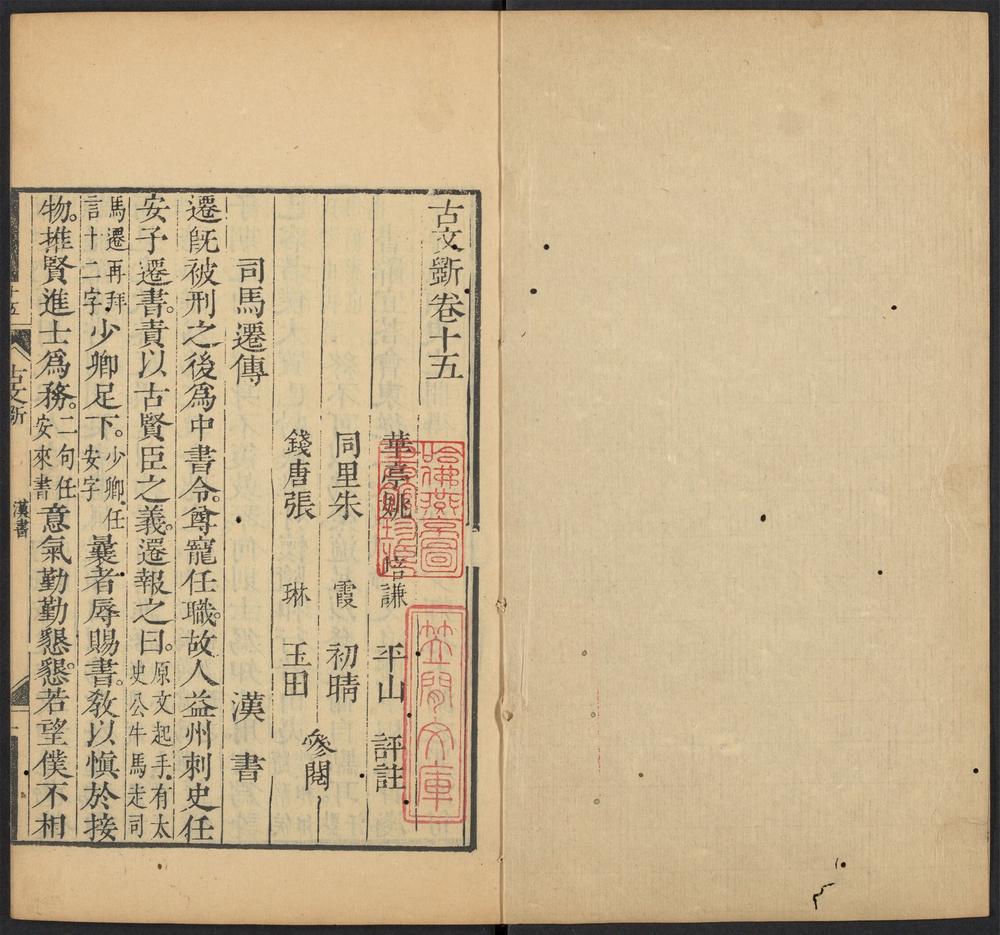 古文斲卷十五
華亭姚 培謙 平山 評註
同里朱 霞 初晴
參閱
錢唐張 琳 玉田
司馬遷傳 漢書
遷旣被刑之後爲中書令。尊寵任職。故人益州刺史任
安子遷書。責以古賢臣之義。遷報之曰。原文起手有太史公牛馬走司
馬遷再拜言十二字少卿足下。少卿任安字曩者辱賜書。敎以愼於接
物。推賢進士爲務。二句任安來書意氣勤勤懇懇。若望僕不相
古文斲 漢書
哈佛燕亰圖
書館珍藏印
笠閒文庫